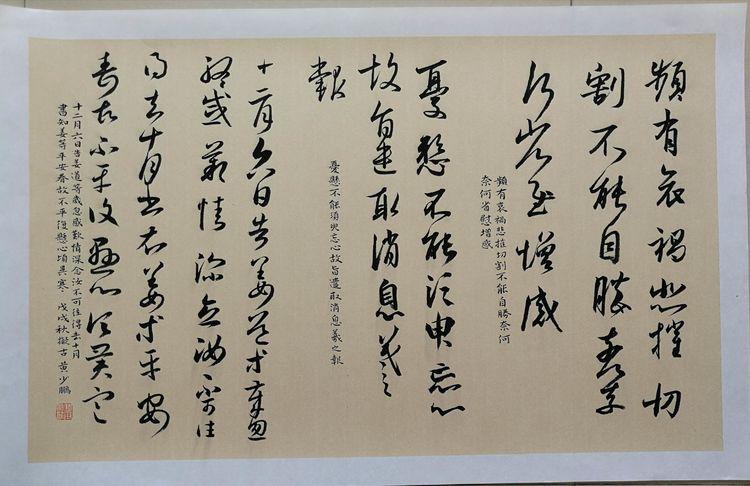 頻有哀禍悲摧切
割不能自勝奈何
省慰增感
頻有哀禍悲摧切割不能自勝奈何
奈何省慰增感
憂懸不能須臾忘心
故旨遣取消息羲之
報
憂懸不能須臾忘心故旨遣取消息羲之報
十二月六日告姜道等歲忽
終感歎情深念汝不可往
得去十月書知姜等平安
壽故不平復懸心頃異寒
十二月六日告姜道等歲忽感歎情深念汝不可往得去十月
書知姜等平安壽故不平復懸心頃異寒 戊戌秋擬古 黃少鵬